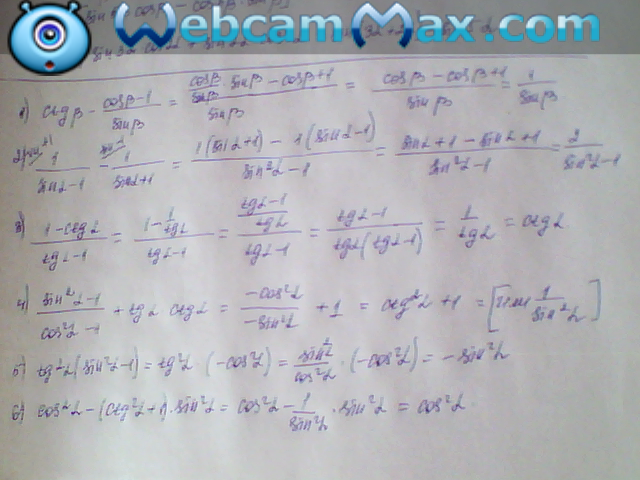 WebcamMax.com
1) ctg β - (cos β - 1)/(sin β) = (cos β/sin β · sin β - cos β + 1)/(sin β) = (cos β - cos β + 1)/(sin β) = 1/(sin β)
2) 1/(sin α - 1) - 1/(sin α + 1) = (1(sin α + 1) - 1(sin α - 1))/(sin²α - 1) = (sin α + 1 - sin α + 1)/(sin²α - 1) = 2/(sin²α - 1)
3) (1 - ctg α)/(tg α - 1) = (1 - 1/tg α)/(tg α - 1) = ((tg α - 1)/tg α)/(tg α - 1) = (tg α - 1)/(tg α (tg α - 1)) = 1/tg α = ctg α
4) (sin²α - 1)/(cos²α - 1) + tg α ctg α = (-cos²α)/(-sin²α) + 1 = ctg²α + 1 = [или 1/sin²α]
5) tg²α (sin²α - 1) = tg²α · (-cos²α) = sin²α/cos²α · (-cos²α) = - sin²α
6) cos²α - (ctg²α + 1) · sin²α = cos²α - 1/sin²α · sin²α = cos²α